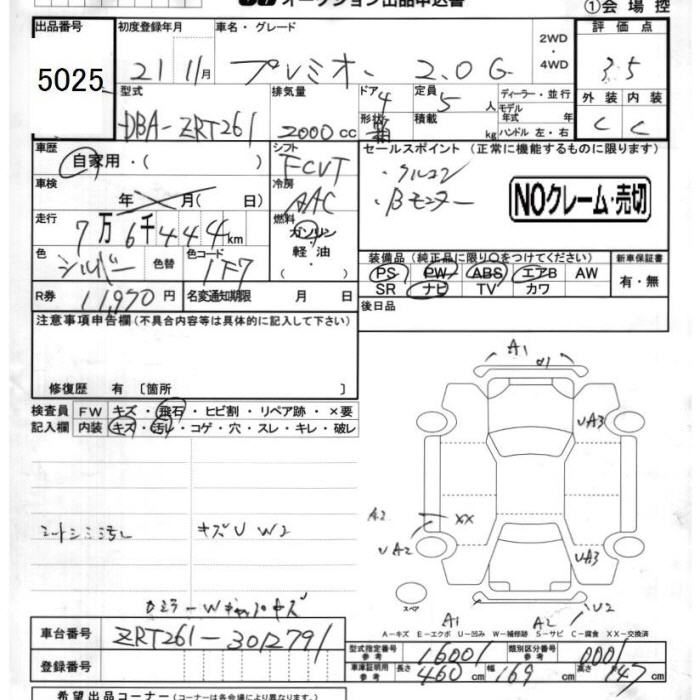 オークション出品申込書
①会場控
出品番号 初度登録年月 車名・グレード 2WD・4WD 評価点
5025 21 11月 プレミオ 2.0 G 3.5
型式 排気量 ドア 4 定員 5 人 ディーラー・並行 外装 内装
DBA-ZRT261 2000 cc 形状 積載 kg モデル年式 年 C C
ハンドル 左・右
車歴 自家用・( ) シフト FCVT セールスポイント (正常に機能するものに限ります)
車検 年 月( 日) 冷房 AAC ・アルコン
・Bモニター
NOクレーム・売切
走行 7万6千444km 燃料 ガソリン
軽油
色 シルバー 色替 色コード 1F7
装備品(純正品に限り○をつけてください) 新車保証書
PS PW ABS エアB AW 有・無
SR ナビ TV カワ
R券 11,970 円 名変通知期限 月 日
後日品
注意事項申告欄(不具合内容等は具体的に記入して下さい)
修復歴 有〔箇所 〕
検査員 FW キズ・飛石・ヒビ割・リペア跡・×要
記入欄 内装 キズ・汚れ・コゲ・穴・スレ・キレ・破レ
A1
U1
UA3
A2
XX
UA2
UA3
シートシミ汚レ キズU W2
スペア
A1 A2 U2
A-キズ E-エクボ U-凹み W-補修跡 S-サビ C-腐食 XX-交換済
車台番号 ZRT261-3012791
型式指定番号 参考 16001 類別区分番号 参考 0001
登録番号
車庫証明用 参考 長さ 460 cm 幅 169 cm 高さ 147 cm
希望出品コーナー(コーナーは各会場により異なります。)